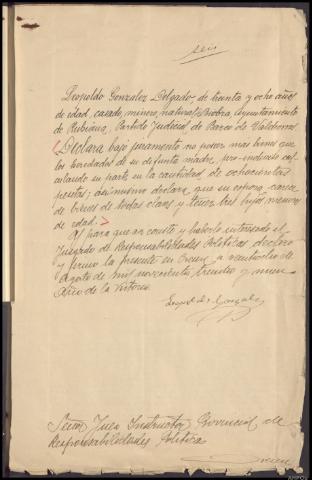 seis
Leopoldo Gonzalez Delgado, de treinta y ocho años
de edad, casado, minero, natural Biobra, Ayuntamiento
de Rubiana, Partido Judicial de Barco de Valdeorras
Declara bajo juramento no poseer mas bienes que
los heredados de su difunta madre, pro-indiviso cal
culando su parte en la cantidad de ochocientas
pesetas; asimismo declara que su esposa carece
de bienes de todas clases y tener tres hijos menores
de edad.
Y para que asi conste y haberlo interesado el
Juzgado de Responsabilidades Politicas declaro
y firmo la presente en Orense a veintiocho de
Agosto de mil novecientos treinta y nueve
Año de la Victoria
Leopoldo Gonzalez
Señor Juez Instructor Provincial de
Responsabilidades Politicas
Orense